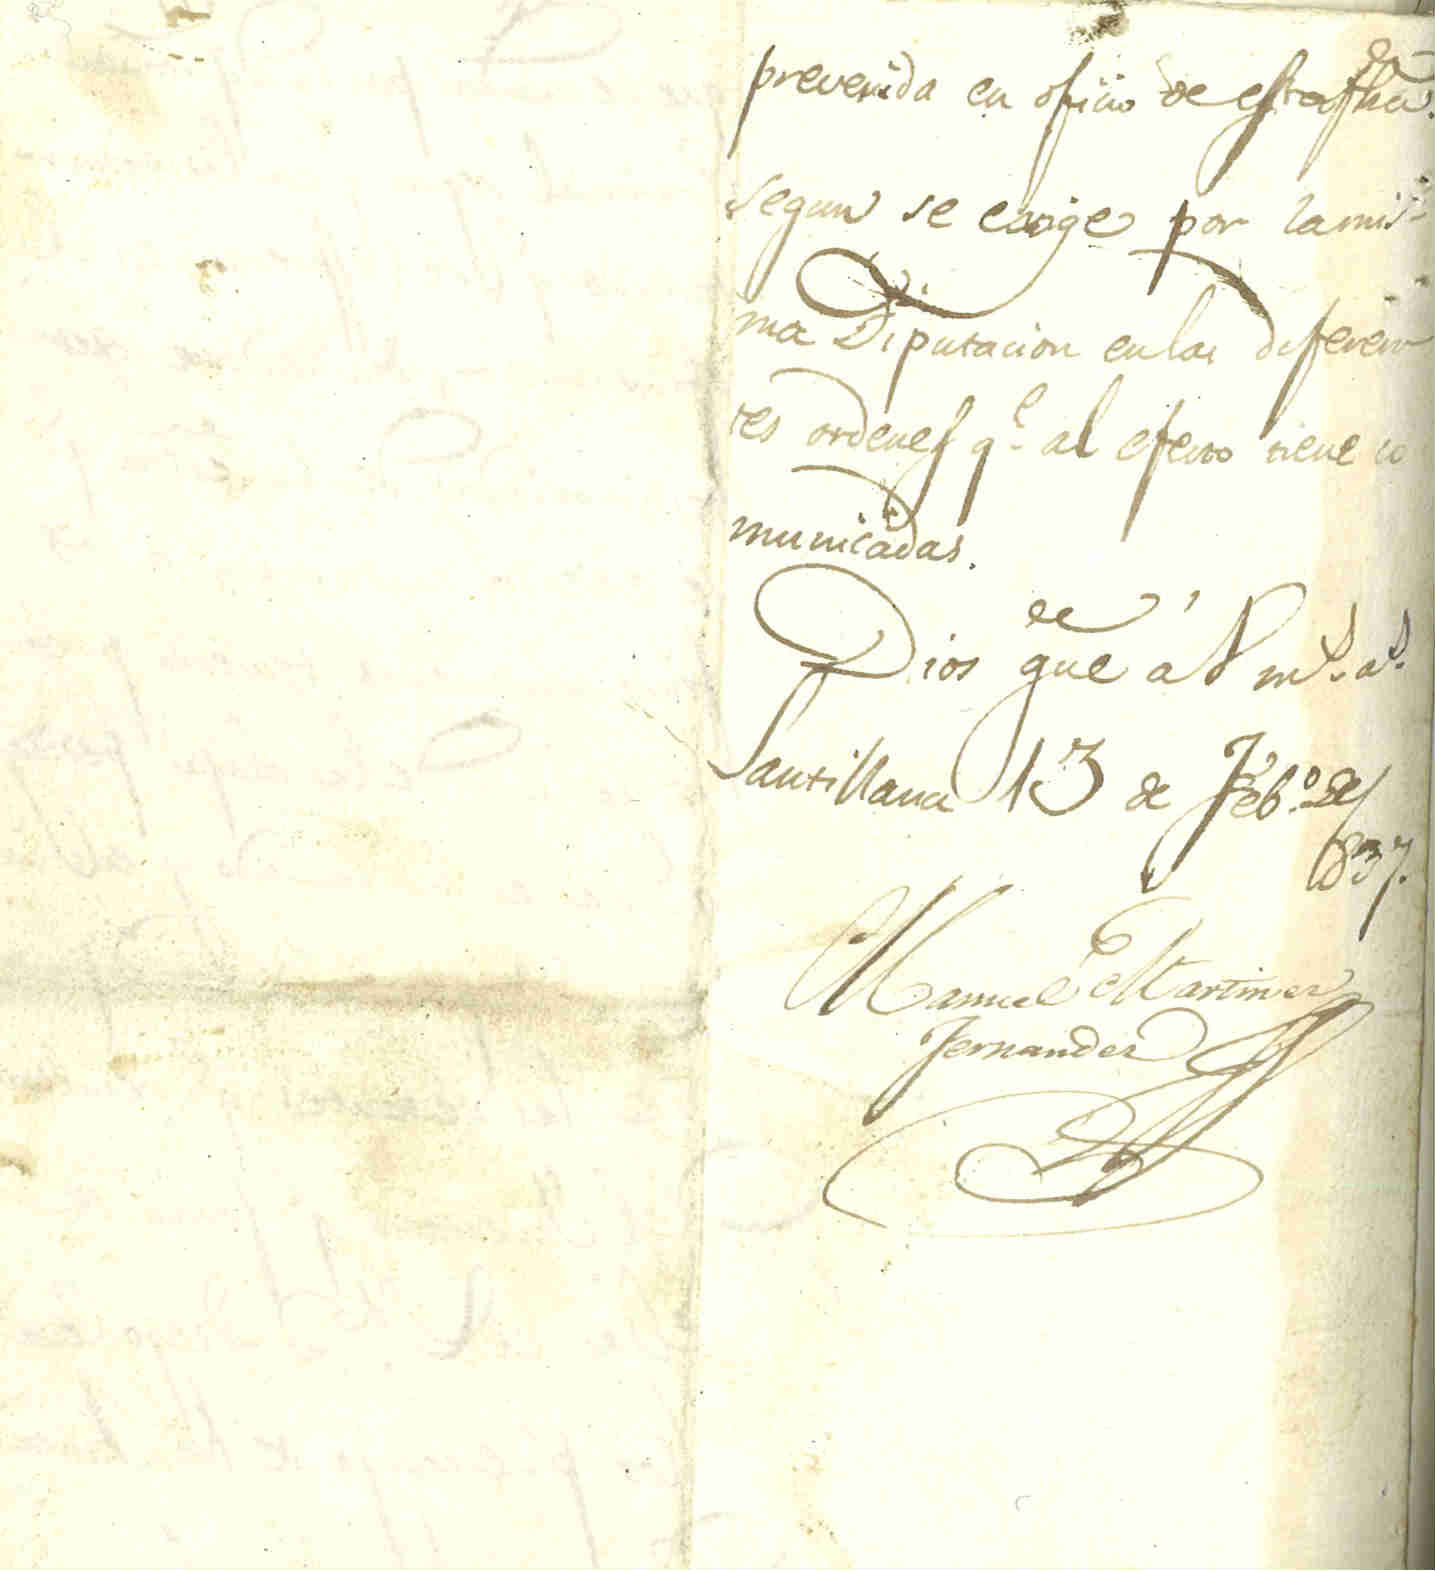 prevenida en oficio de esta fha.
segun se exige por la mis-
ma Diputacion en las diferen
tes ordenes q.e al efecto tiene co
municadas.
Dios gue á V m.s a.s
Santillana 13 de Feb.o de
1837.
Manuel Martinez
Fernandez